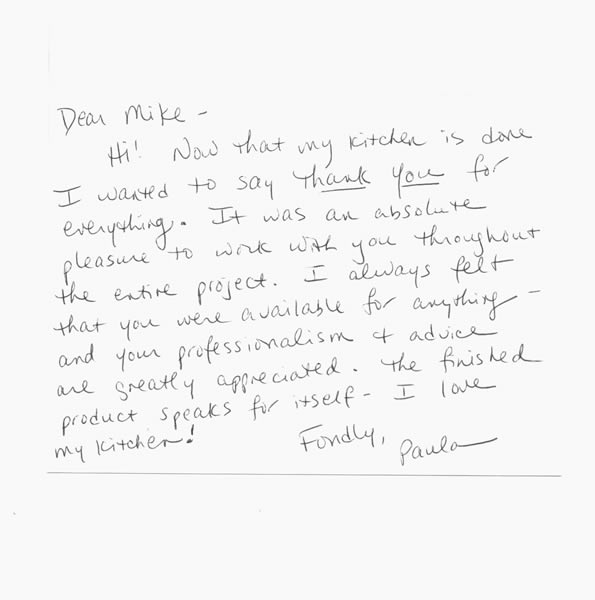 Dear Mike -
Hi! Now that my kitchen is done
I wanted to say thank you for
everything. It was an absolute
pleasure to work with you throughout
the entire project. I always felt
that you were available for anything -
and your professionalism & advice
are greatly appreciated. The finished
product speaks for itself - I love
my kitchen!
Fondly,
Paula